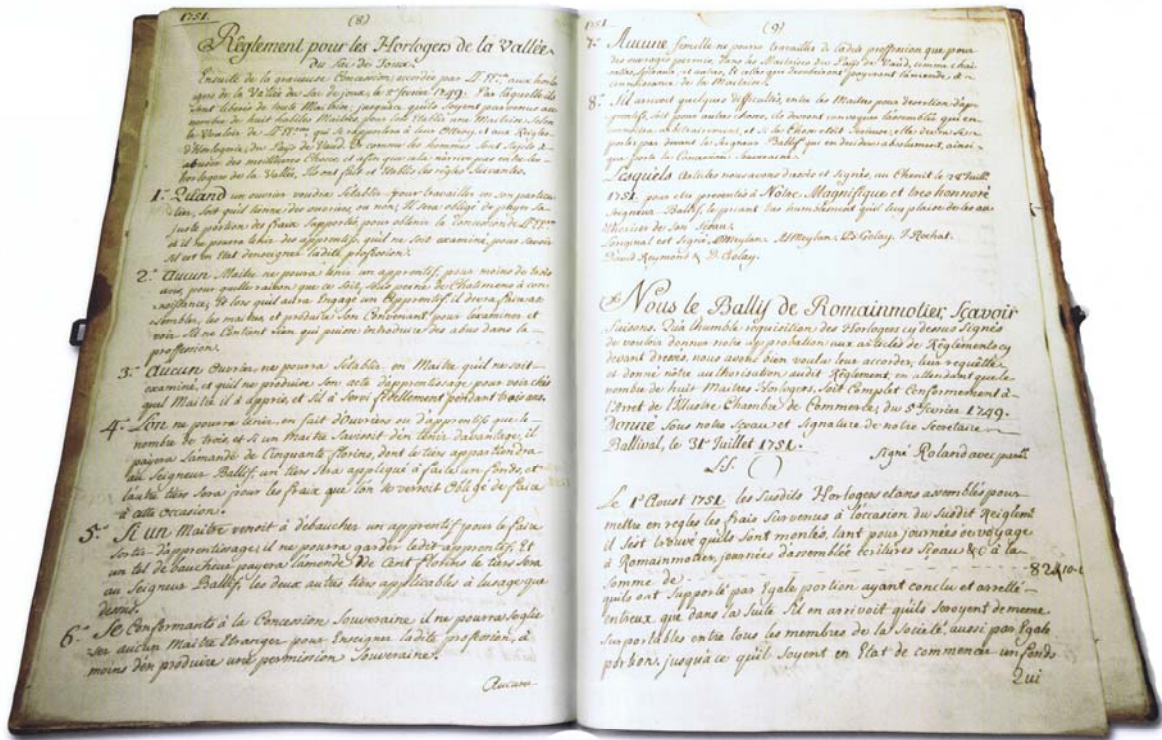 1751.
(8)
Règlement pour les Horlogers de la Vallée
du Lac de Joux.
Ensuite de la gracieuse Concession, accordée par LL. EE. aux horlo
gers de la Vallée du Lac de joux, le 5e février 1749. Par laquelle ils
sont liberés de toute Maitrise, jusqu'ace quils soyent parvenus au
nombre de huit habiles Maitres, pour lors etablir une Maitrise, Selon
le Vouloir de LL. EE. qui se rapportera à leur Ottroy, et aux Règles
d'Horlogerie, du Païs de Vaud. Et comme les hommes sont sujets à
abuser des meilleures Choses, et afin que cela n'arrive pas entre les
horlogers de la Vallée, Ils ont fait et établis les règles Suivantes.
1.° Quand un ouvrier voudra s'établir pour travailler en son particu
lier, soit quil tienne des ouvriers, ou non, Il sera obligé de payer sa
juste portion des fraix Supportés pour obtenir la Concession de LL. EE.
et il ne pourra tenir des apprentifs, quil ne soit examiné, pour savoir
s'il est en Etat d'enseigner ladite proffession.
2.° Aucun Maitre ne poura tenir un apprentif, pour moins de trois
ans, pour quelle raison que ce soit, sous peine de Chatiment à con
noissance, Et lors quil aura Engagé un Apprentif, il devra faire as
sembler, les maitres, et produire son Convenant pour l'examiner et
voir s'il ne Contient rien qui puisse introduire des abus dans la
proffession.
3.° Aucun Ouvrier, ne pourra s'établir, en Maitre quil ne soit
examiné, et quil ne produise son acte d'apprentissage pour voir chés
quel Maitre il a appris, et sil a servi fidellement pendant trois ans.
4.° Lon ne pourra tenir, en fait d'Ouvriers ou d'apprentifs que le
nombre de trois, et si un Maitre Venoit d'en tenir davantage, il
payera Lamande de Cinquante florins, dont le tiers appartiendra
au Seigneur Ballif, un tiers sera appliqué à faire un fonds, et
l'autre tiers sera pour les fraix que lon se verroit Obligé de faire
à cette occasion.
5.° Si un Maitre venoit à débaucher un apprentif pour le faire
sortir d'apprentissage, il ne pourra garder ledit apprentif. Et
un tel debaucheur payera lamende de Cent florins le tiers sera
au Seigneur Ballif, les deux autres tiers applicables à lusage que
dessus.
6.° Se Conformants à la Concession Souveraine il ne pourra
aucun Maitre Etranger pour Enseigner ladite proffession, à
moins d'en produire une permission Souveraine.
Aucune
1751
(9)
7.° Aucune femille ne pourra travailler de ladite proffession que pour
des ouvrages permis, dans les Maitrises du Païs de Vaud, comme chai
nettes, spiraux, et autres, Et celles que desobeiront payeront lamande, à
connoissance de la Maitrise.
8.° Sil arrivoit quelques difficultés, entre les Maitres pour desertion d'ap
prentifs, soit pour autres choses, ils devront convoquer lassemblée qui en
connoitra arbitrairement, et si la Chose etoit serieuse, elle devra être
portée par devant le Seigneur Ballif qui en decidera absolument, ainsi
que porte la Concession Souveraine.
Lesquels articles nous avons dressés et signés, au Chenit le 28e Juill.
1751. pour etre presentés à Notre Magnifique et tres honnoré
Seigneur Ballif, le priant tres humblement quil luy plaise de les au
thoriser de son Sceau.
Loriginal est signé, Meylan. Meylan. Golay. Rochat.
David Reymond & D. Golay.
Nous le Ballif de Romainmotier, sçavoir
faisons. Qu'à lhumble requisition des Horlogers cy dessus signés
de vouloir donner notre approbation aux articles de Règlements cy
devant dressés, nous avons bien voulus leur accorder, leur requêtte,
et donné notre authorisation audit Règlement, en attendant que le
nombre de huit Maitres Horlogers, soit Complet Conformement à
l'Arret de l'Illustre Chambre de Commerce, du 5e février 1749.
Donné Sous notre Sceau et Signature de notre Secretaire
Ballival, le 31e Juillet 1751.
L.S. ( )
Signé Roland avec par
Le 1er Aoust 1751 les susdits Horlogers etans assemblés pour
mettre en regles les frais Survenus à l'occasion du susdit Reiglemt
il s'est trouvé quils sont montés, tant pour journées de voyage
à Romainmotier, journées d'assemblée ecritures Sceau &c à la
somme de 82
quils ont Supporté par Egale portion ayant conclu et arresté
entreux que dans la Suite s'il en arrivoit quils seroyent de meme
Suportables entre tous les membres de la Societé, aussi par Egale
portion, jusqu'ace quil soyent en Etat de commencer un fonds
Qui